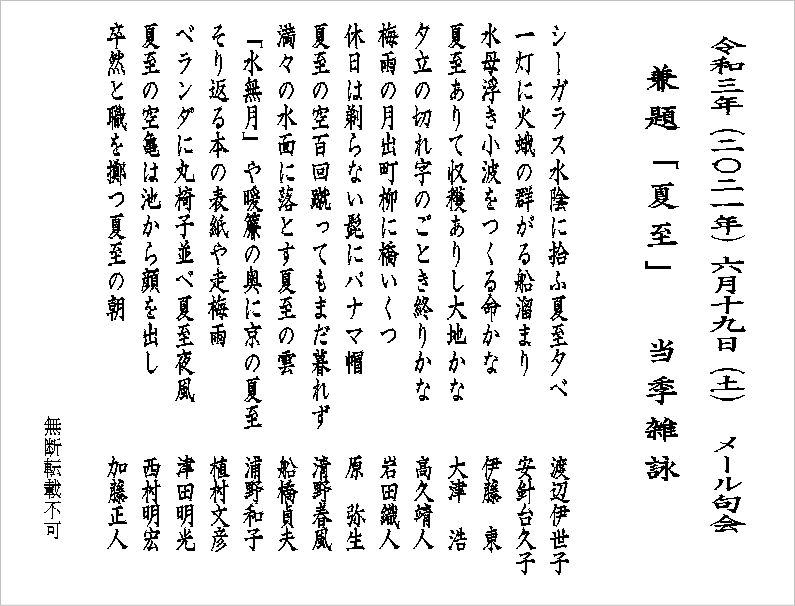 令和三年（二〇二一年）六月十九日（土）　メール句会
兼題「夏至」　当季雑詠
シーガラス水陰に拾ふ夏至夕べ　渡辺伊世子
一灯に火蛾の群がる船溜まり　安針台久子
水母浮き小波をつくる命かな　伊藤　東
夏至ありて収穫ありし大地かな　大津　浩
夕立の切れ字のごとき終りかな　高久靖人
梅雨の月出町柳に橋いくつ　岩田鐵人
休日は剃らない髭にパナマ帽　原　弥生
夏至の空百回蹴ってもまだ暮れず　清野春風
満々の水面に落とす夏至の雲　船橋貞夫
「水無月」や暖簾の奥に京の夏至　浦野和子
そり返る本の表紙や走梅雨　植村文彦
ベランダに丸椅子並べ夏至夜風　津田明光
夏至の空亀は池から顔を出し　西村明宏
卒然と職を擲つ夏至の朝　加藤正人
無断転載不可